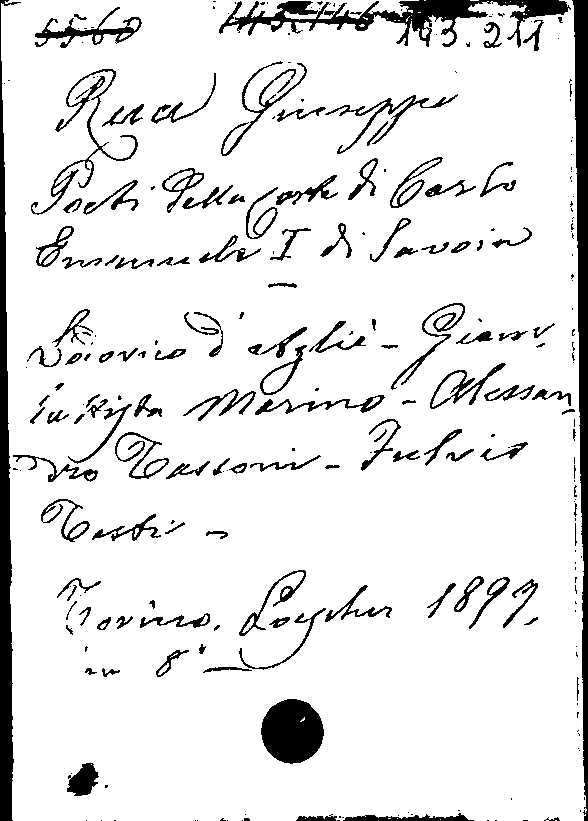 5560 143.146 143.211
Rua Giuseppe
Poeti della corte di Carlo
Emanuele I di Savoia
—
Lodovico d'Agliè - Giam-
battista Marino - Alessan-
dro Tassoni - Fulvio
Testi -
Torino, Loescher 1899,
in 8°